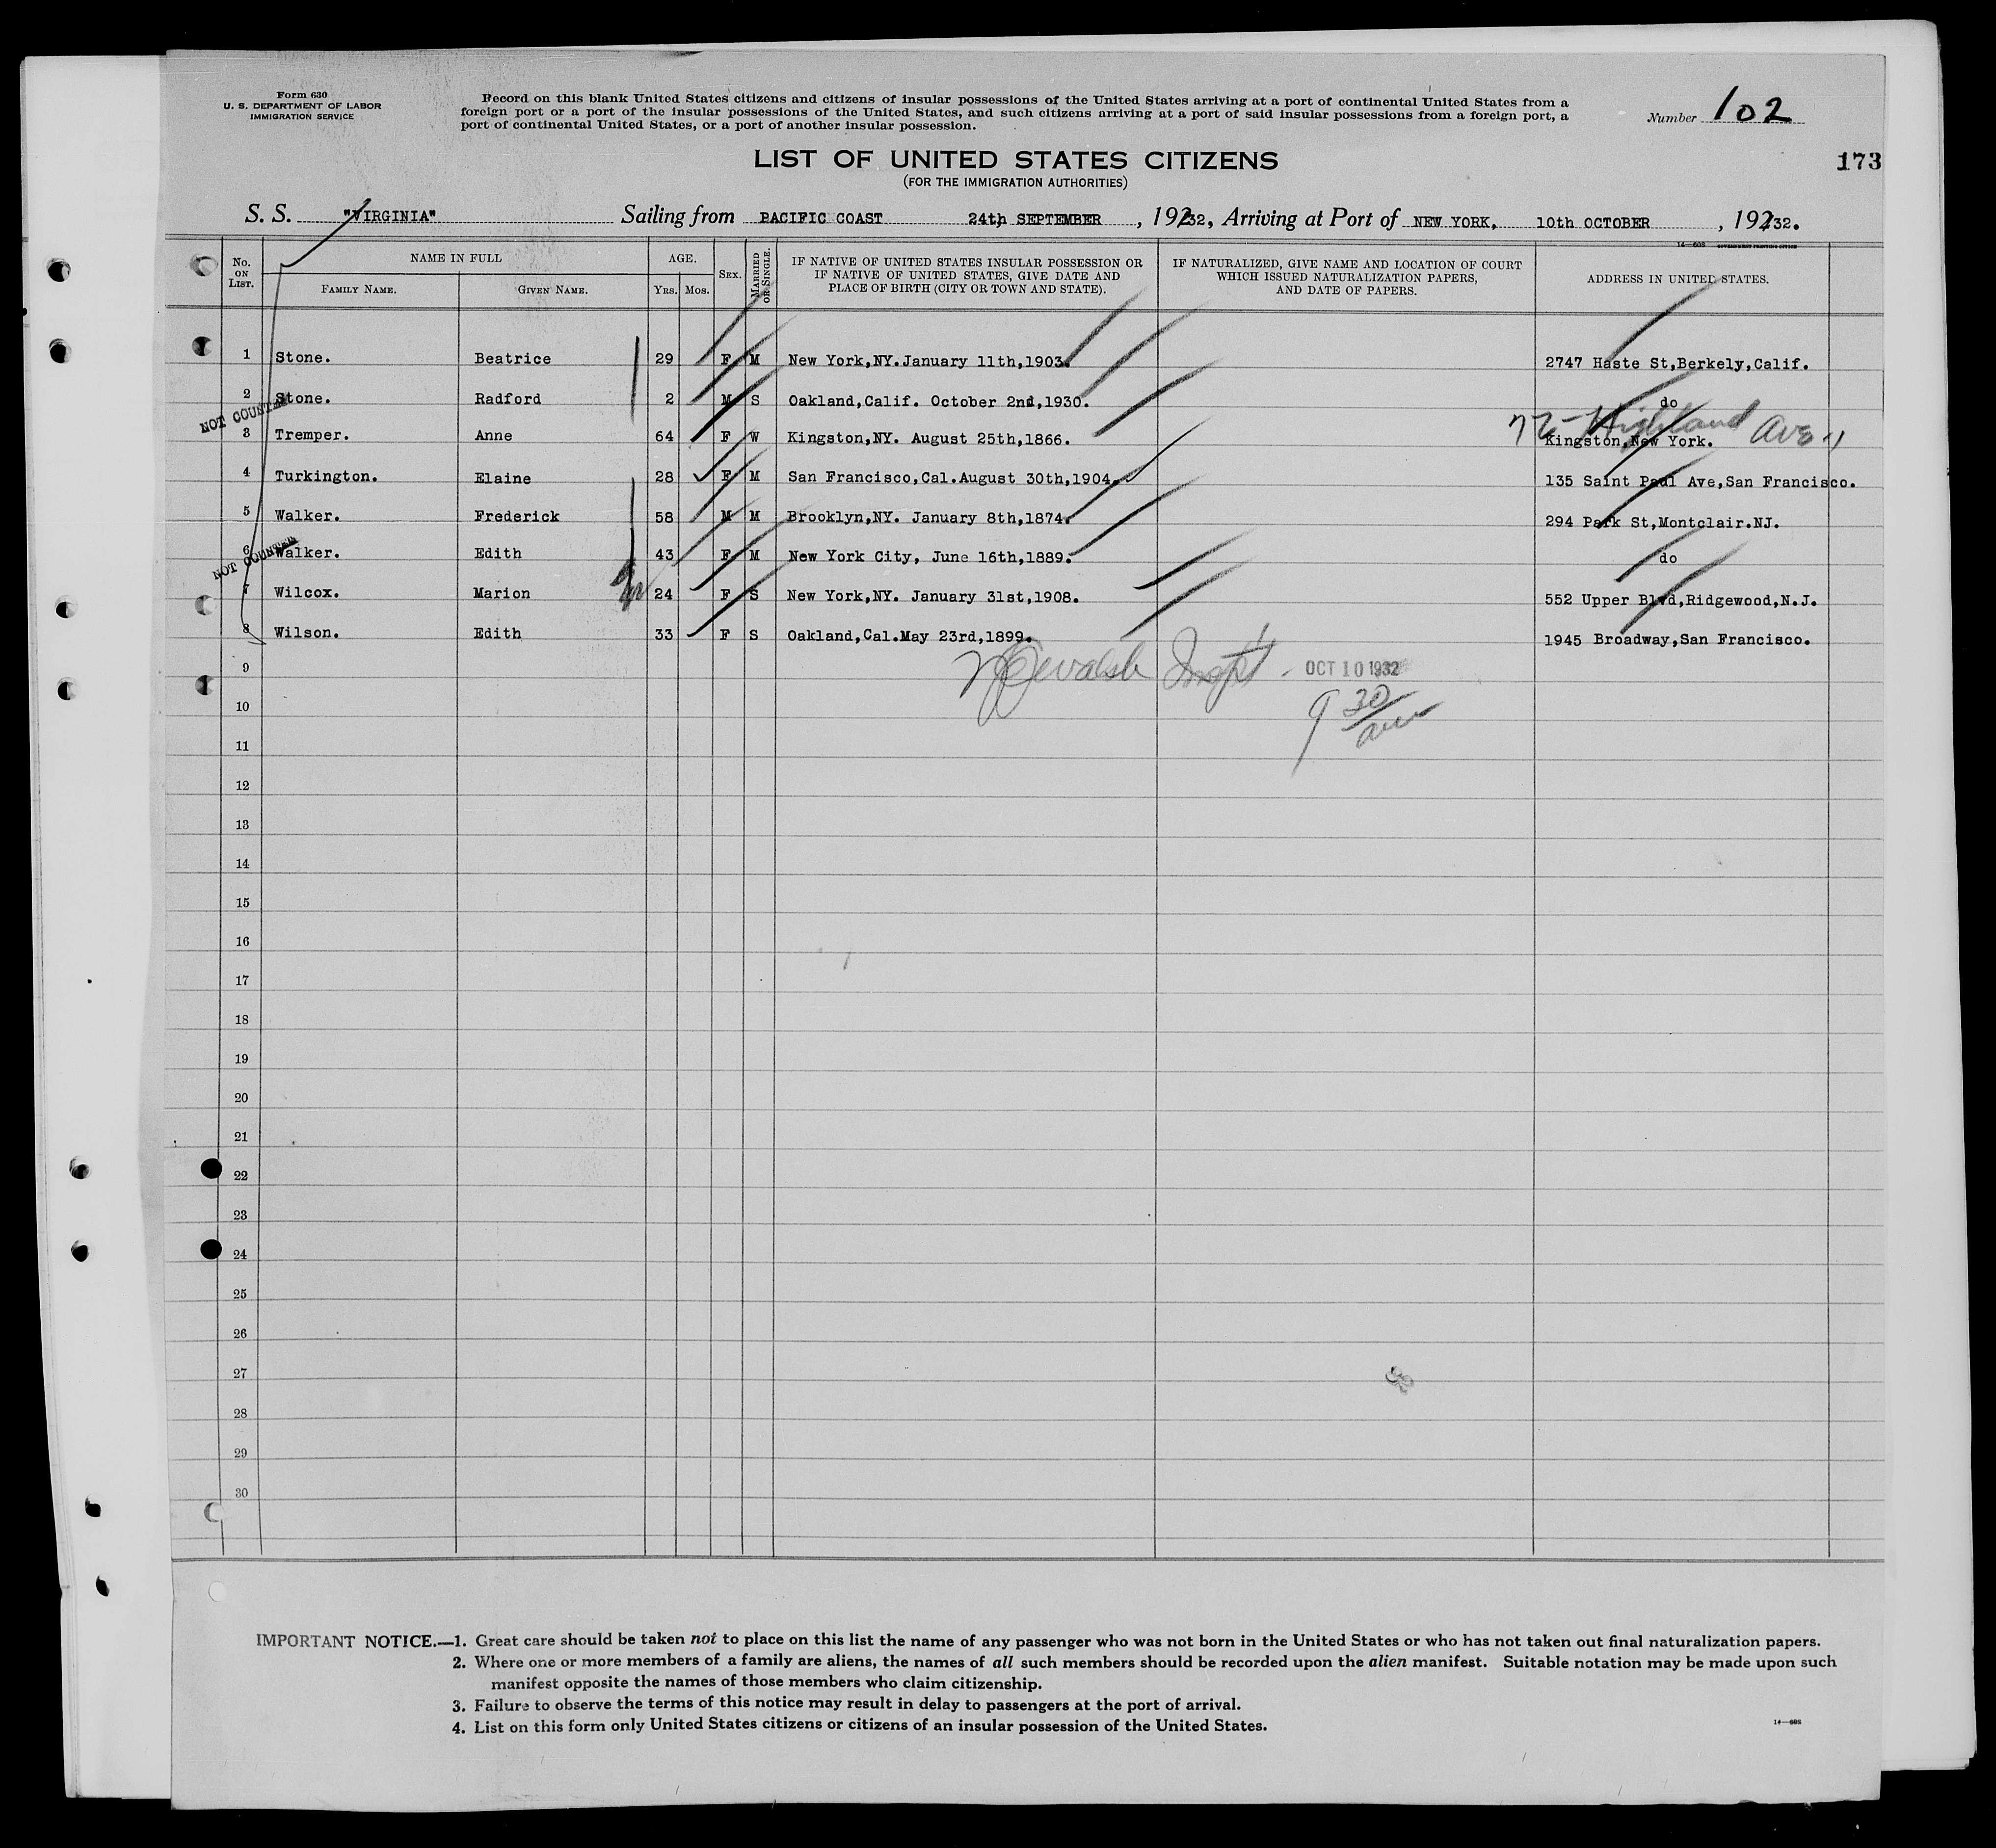 Form 630
U. S. DEPARTMENT OF LABOR
IMMIGRATION SERVICE
Record on this blank United States citizens and citizens of insular possessions of the United States arriving at a port of continental United States from a
foreign port or a port of the insular possessions of the United States, and such citizens arriving at a port of said insular possessions from a foreign port, a
port of continental United States, or a port of another insular possession.
Number 102
173
LIST OF UNITED STATES CITIZENS
(FOR THE IMMIGRATION AUTHORITIES)
S. S. "VIRGINIA" Sailing from PACIFIC COAST 24th SEPTEMBER , 19232, Arriving at Port of NEW YORK, 10th OCTOBER , 19232.
14—608 GOVERNMENT PRINTING OFFICE
No. ON LIST. NAME IN FULL FAMILY NAME. GIVEN NAME. AGE. YRS. MOS. SEX. MARRIED OR SINGLE. IF NATIVE OF UNITED STATES INSULAR POSSESSION OR IF NATIVE OF UNITED STATES, GIVE DATE AND PLACE OF BIRTH (CITY OR TOWN AND STATE). IF NATURALIZED, GIVE NAME AND LOCATION OF COURT WHICH ISSUED NATURALIZATION PAPERS, AND DATE OF PAPERS. ADDRESS IN UNITED STATES.
1 Stone. Beatrice 29 F M New York,NY.January 11th,1903. 2747 Haste St,Berkely,Calif.
2 Stone. Radford 2 M S Oakland,Calif. October 2nd,1930. do
NOT COUNTED
72 - Highland Ave.
3 Tremper. Anne 64 F W Kingston,NY. August 25th,1866. Kingston,New York.
4 Turkington. Elaine 28 F M San Francisco,Cal.August 30th,1904. 135 Saint Paul Ave,San Francisco.
5 Walker. Frederick 58 M M Brooklyn,NY. January 8th,1874. 294 Park St,Montclair.NJ.
6 Walker. Edith 43 F M New York City, June 16th,1889. do
NOT COUNTED
7 Wilcox. Marion 24 F S New York,NY. January 31st,1908. 552 Upper Blvd,Ridgewood,N.J.
8 Wilson. Edith 33 F S Oakland,Cal.May 23rd,1899. 1945 Broadway,San Francisco.
Walsh Inspt. OCT 10 1932
9 30
am
9
10
11
12
13
14
15
16
17
18
19
20
21
22
23
24
25
26
27
28
29
30
IMPORTANT NOTICE.—1. Great care should be taken not to place on this list the name of any passenger who was not born in the United States or who has not taken out final naturalization papers.
2. Where one or more members of a family are aliens, the names of all such members should be recorded upon the alien manifest. Suitable notation may be made upon such
manifest opposite the names of those members who claim citizenship.
3. Failure to observe the terms of this notice may result in delay to passengers at the port of arrival.
4. List on this form only United States citizens or citizens of an insular possession of the United States.
14—608